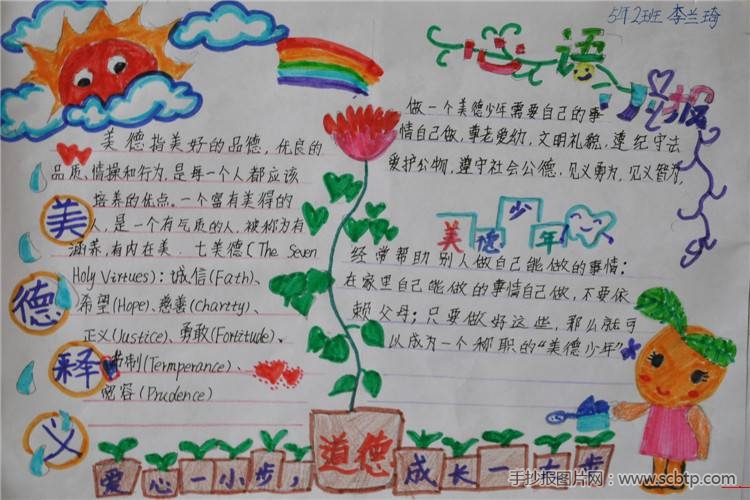 5年2班 李兰琦
心语小报
美德释义
美德指美好的品德,优良的
品质、情操和行为,是每一个人都应该
培养的优点。一个富有美得的
人,是一个有气质的人,被称为有
涵养,有内在美.七美德(The Seven
Holy Virtues):诚信(Fath)、
希望(Hope)、慈善(Chartty)、
正义(Justice)、勇敢(Fortitude)、
制(Termperance)、
宽容(Prudence)
做一个美德少年需要自己的事
情自己做,尊老爱幼,文明礼貌,遵纪守法
爱护公物,遵守社会公德,见义勇为,见义智为,
美德少年
经常帮助别人做自己能做的事情;
在家里自己能做的事情自己做,不要依
赖父母;只要做好这些,那么就可
以成为一个称职的“美德少年”
爱心一小步,道德成长一步
手抄报图片网:www.scbtp.com